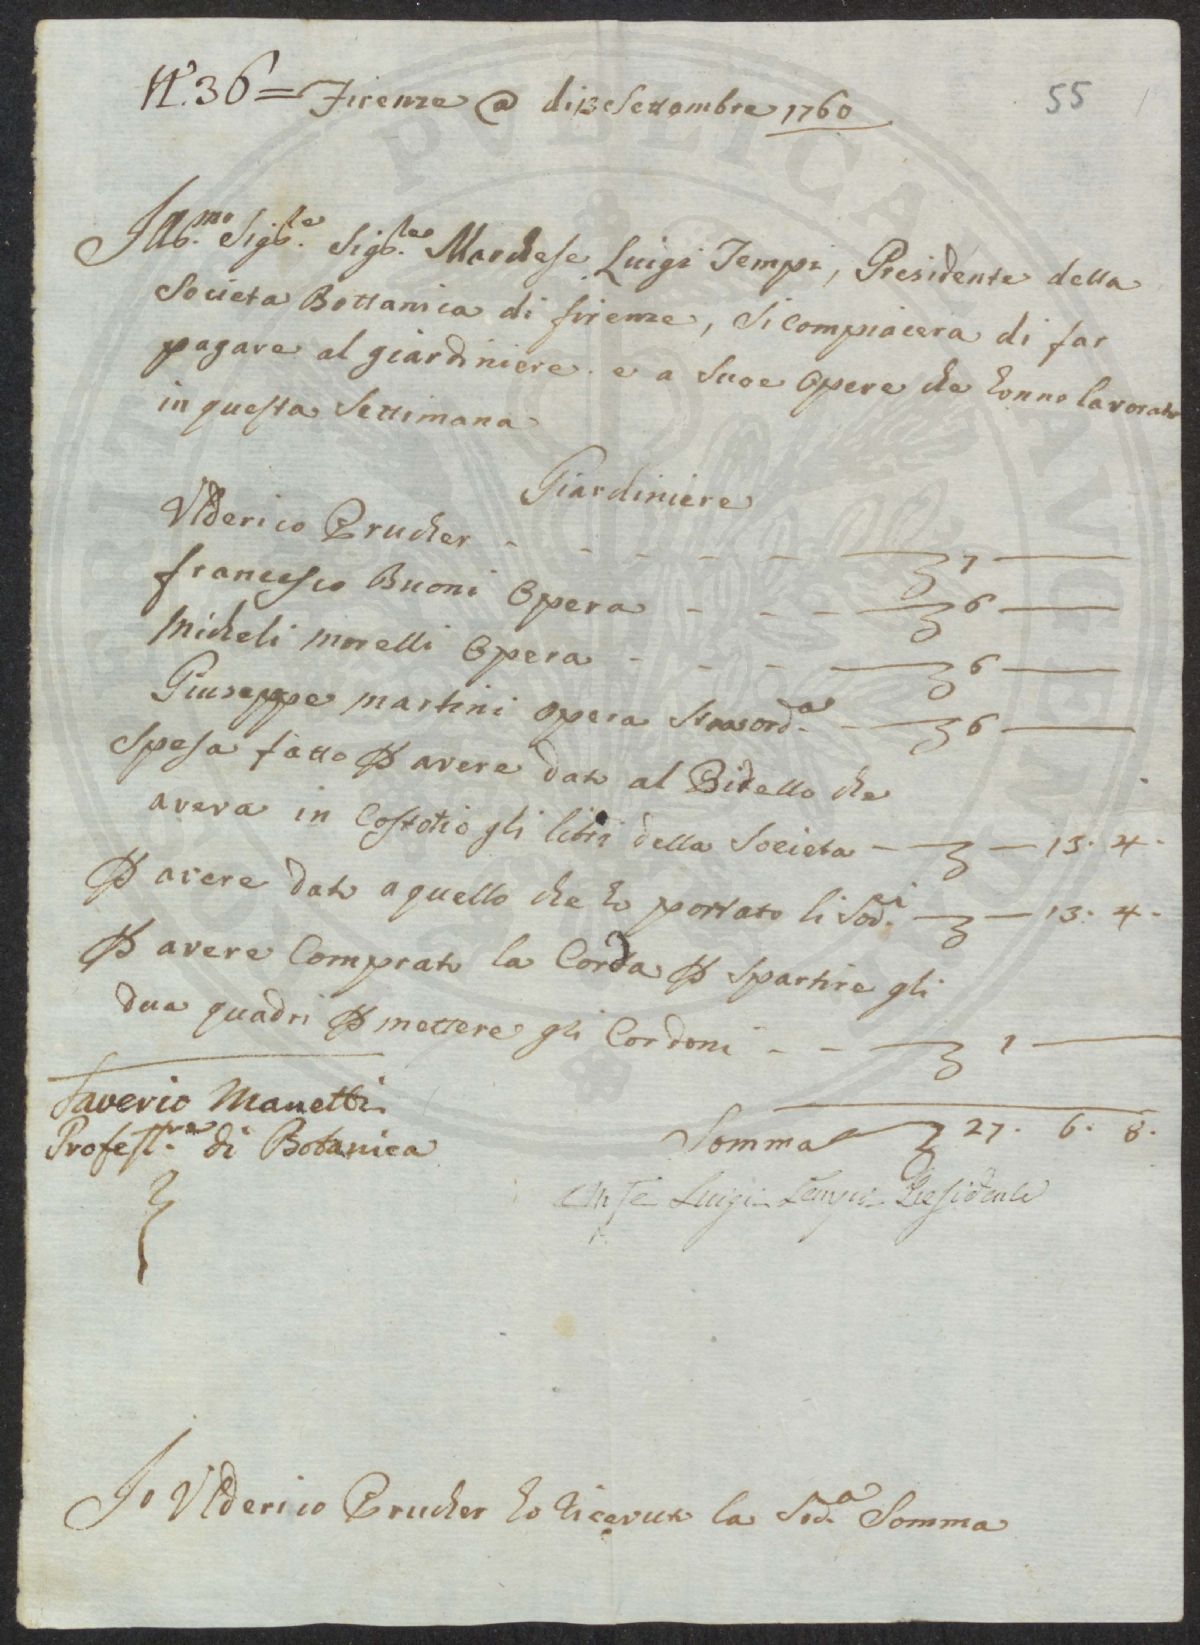 Nº. 36 = Firenze @ di 13 Settembre 1760
55
Illt.mo Sig.re Sig.re Marchese Luigi Tempi, Presidente della
Societa Bottanica di firenze, Si Compiacera di far
pagare al giardiniere e a Suoe Opere che hanno lavorato
in questa Settimana
Giardiniere
Vlderico Prucher - - - - - 7 —
francesco Buoni Opera - - - 6 —
Micheli Morelli Opera - - - 6 —
Giuseppe Martini Opera Straord.a - 6 —
Spesa fatto P avere dato al Bidello che
aveva in Costodio gli libri della Societa — — 13. 4.
P avere dato a quello che ha portato li Sod.i — — 13. 4.
P avere Comprato la Corda P Spartire gli
due quadri P mettere gli Cordoni - - 1 —
Saverio Manetti
Profess.re di Botanica
Somma 27. 6. 8.
Luigi Tempi Presidente
Io Vlderico Prucher ho Ricevuto la Sod.a Somma
PVBLICAE